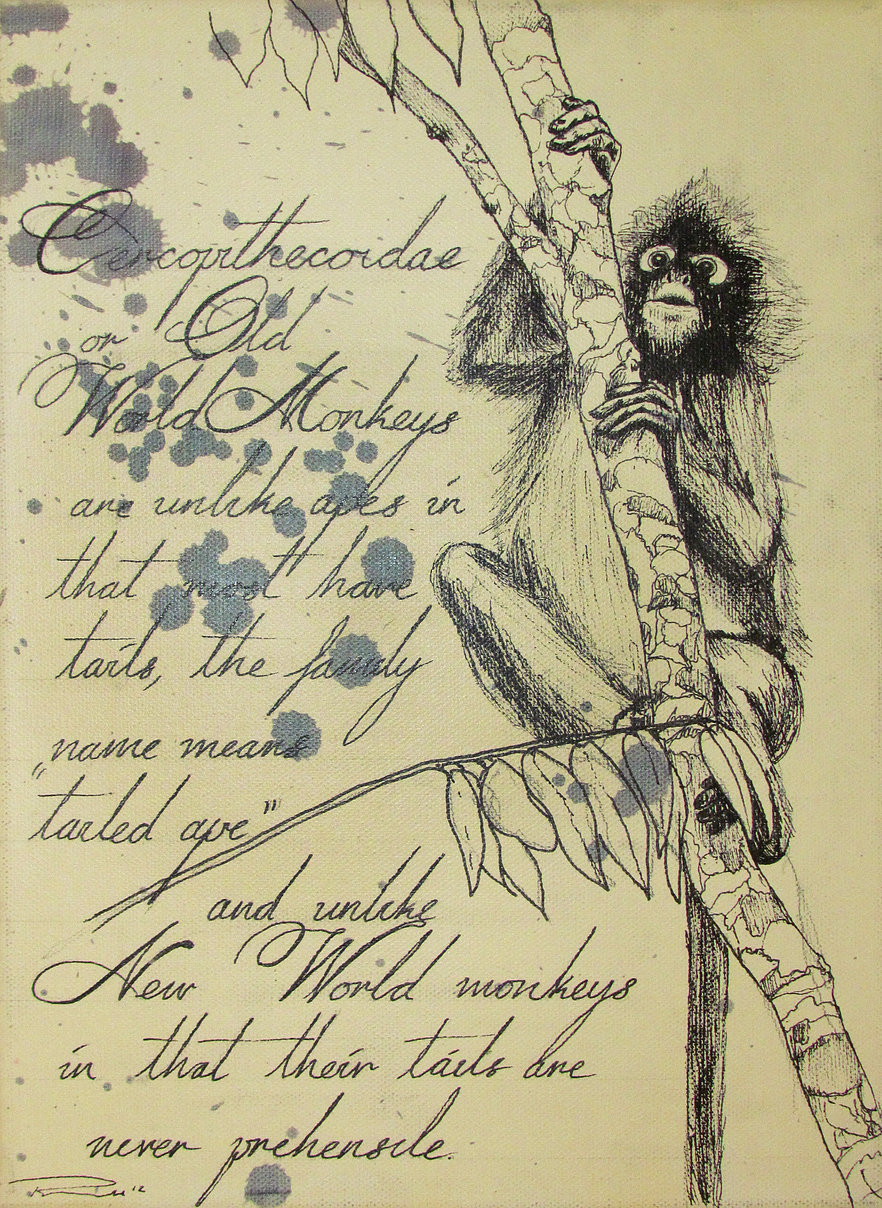 Cercopithecoidae
or Old
World Monkeys
are unlike apes in
that most have
tails, the family
„name means
tailed ape"
and unlike
New World monkeys
in that their tails are
never prehensile.
'12